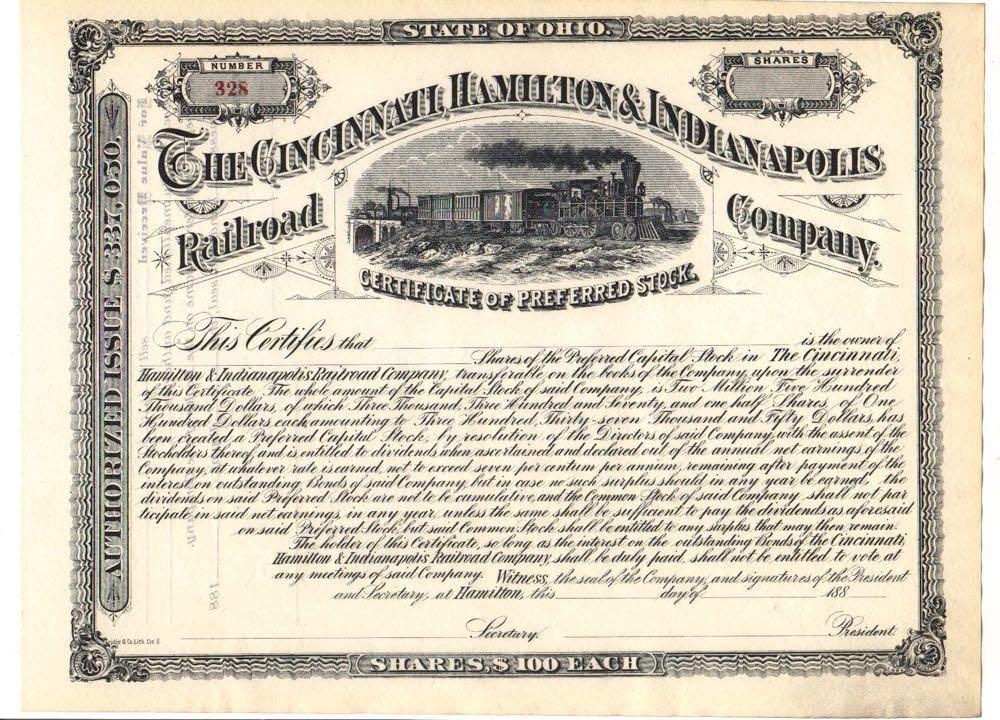 STATE OF OHIO.
NUMBER
328
SHARES
THE CINCINNATI, HAMILTON & INDIANAPOLIS
Railroad Company.
CERTIFICATE OF PREFERRED STOCK.
AUTHORIZED ISSUE $ 337,050.
This Certifies that is the owner of
Shares of the Preferred Capital Stock in The Cincinnati,
Hamilton & Indianapolis Railroad Company, transferable on the books of the Company upon the surrender
of this Certificate. The whole amount of the Capital Stock of said Company, is Two Million Five Hundred
Thousand Dollars, of which Three Thousand, Three Hundred and Seventy, and one half Shares, of One
Hundred Dollars each, amounting to Three Hundred, Thirty-seven Thousand and Fifty Dollars, has
been created a Preferred Capital Stock, by resolution of the Directors of said Company, with the assent of the
Stocholders thereof, and is entitled to dividends when ascertained and declared out of the annual net earnings of the
Company, at whatever rate is earned, not to exceed seven per centum per annum, remaining after payment of the
interest on outstanding Bonds of said Company, but in case no such surplus should in any year be earned, the
dividends on said Preferred Stock are not to be cumulative, and the Common Stock of said Company shall not par
ticipate, in said net earnings, in any year, unless the same shall be sufficient to pay the dividends as aforesaid
on said Preferred Stock, but said Common Stock shall be entitled to any surplus that may then remain.
The holder of this Certificate, so long as the interest on the outstanding Bonds of the Cincinnati
Hamilton & Indianapolis Railroad Company, shall be duly paid, shall not be entitled to vote at
any meetings of said Company. Witness, the seal of the Company, and signatures of the President
and Secretary, at Hamilton, this day of 188
Secretary. President.
& Co. Lith. Cin. O.
SHARES, $ 100 EACH